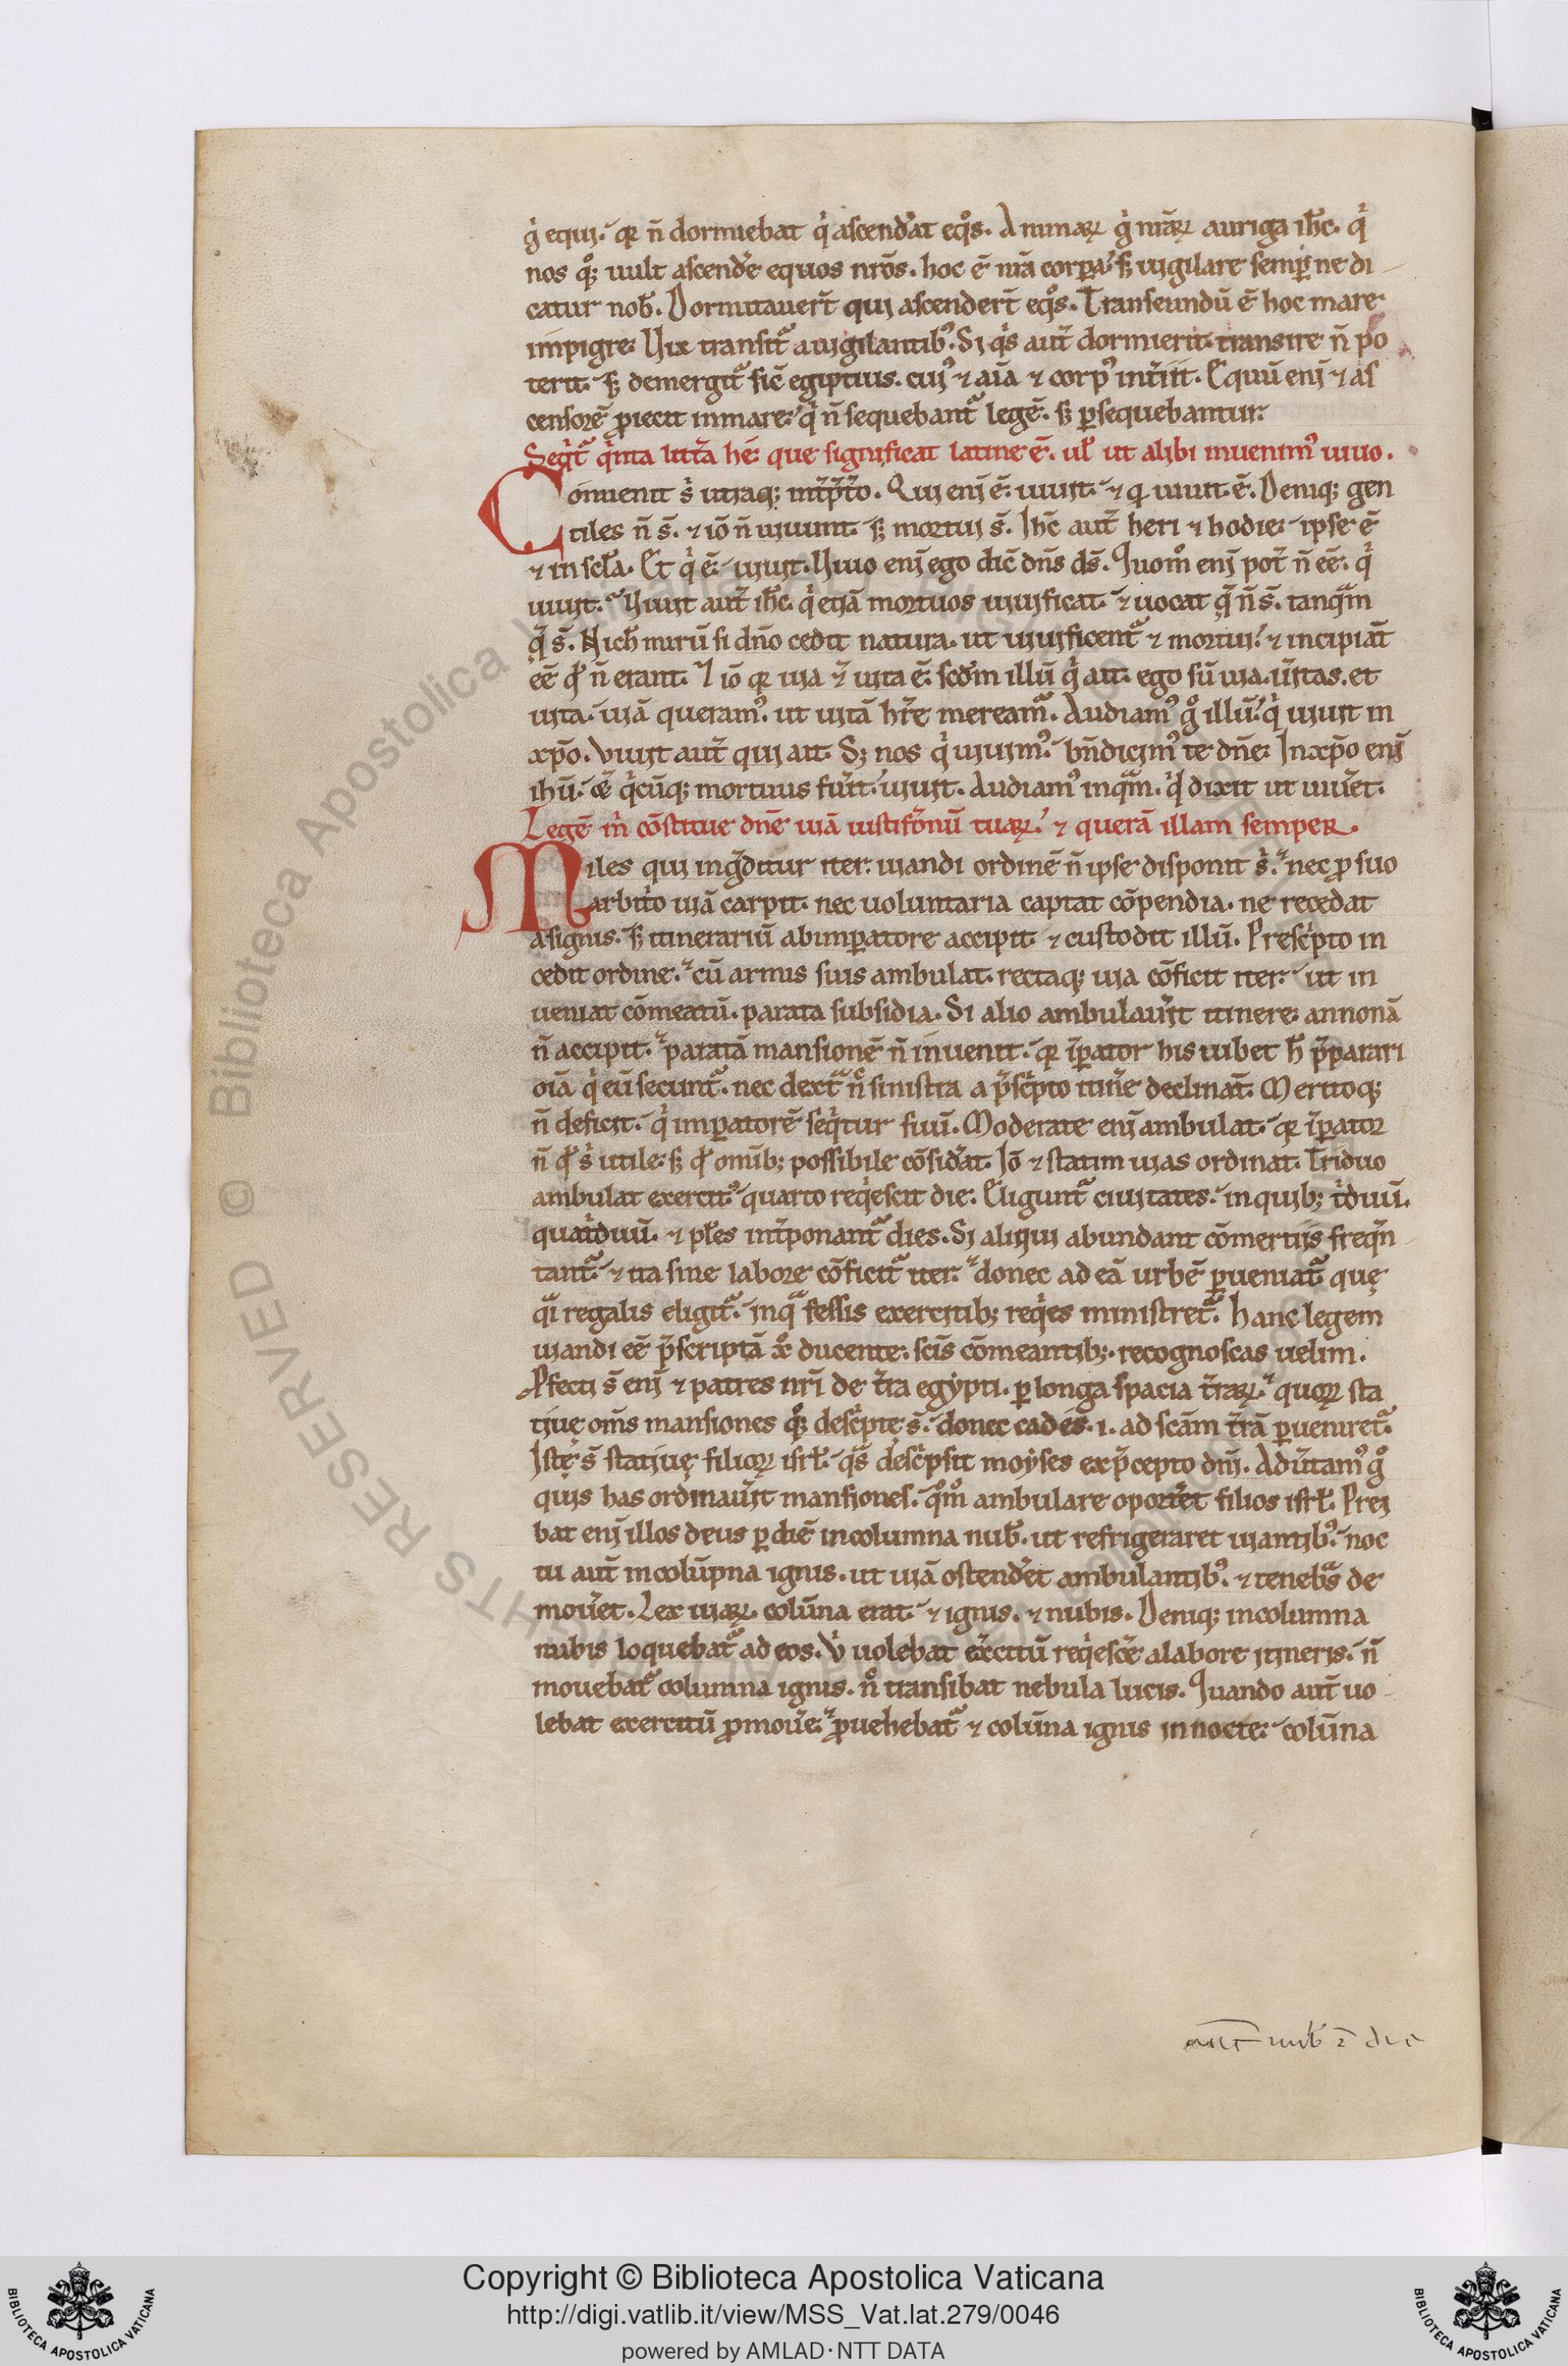 g̊ equi. qr̄ n̄ dormiebat q̇ ascend̓at eq̊s. Animaꝝ g̊ nr̄aꝝ auriga ih̄c. q̇
nos q̊ꝫ uult ascend̓e equos nr̄os. hoc ē nr̄a corꝑa. sꝫ uigilare semꝑ ne di
catur nob̄. Dormitauer̄t qui ascender̄t eq̊s. Transeundū ē hoc mare
impigre. Vix transit᷑ a uigilantib᷒. Si q̇s aut̄ dormierit. transire n̄ po
terit. sꝫ demergit᷑ sic̄ egiptius. cui᷒ ⁊ aīa ⁊ corp᷒ int̓iit. Equū eni ⁊ as
censorē ꝓiecit in mare. q̇ n̄ sequebant᷑ legē. sꝫ ꝑsequebantur.
Seq̇t᷑ q̇nta litt̄a he. que significat latine ē. ul̄ ut alibi inuenim᷒ uiuo.
Conuenit ṡ utraqꝫ int̓p̄t̄o. Qui eni ē. uiuit. ⁊ q̇ uiuit. ē. Deniqꝫ gen
tiles n̄ s̄. ⁊ iō n̄ uiuunt. sꝫ mortui s̄. Ih̄c aut̄ heri ⁊ hodie. ipse ē
⁊ in sc̄la. Et q̇ ē. uiuit. Viuo eni ego dic̄ dn̄s ds̄. Quom̊ eni pot̄ n̄ eē. q̇
uiuit. Viuit aut̄ ih̄c. q̇ etiā mortuos uiuificat. ⁊ uocat q̄ n̄ s̄. tanq̄m
q̄ s̄. Nich̄ mirū si dn̄o cedit natura. ut uiuificent᷑ ⁊ mortui. ⁊ incipiāt
eē qd̄ n̄ erant. ⁊ iō qr̄ uia ⁊ uita ē. scd̄m illū q̇ ait. ego sū uia. ūitas. et
uita. uiā queram᷒. ut uitā hr̄e meream᷑. Audiam᷒ g̊ illū. q̇ uiuit in
xp̄o. Viuit aut̄ qui ait. Sꝫ nos q̇ uiuim᷒. bn̄dicim᷒ te dn̄e. In xp̄o eni
ihū. cē q̇cūqꝫ mortuus fu̓it. uiuit. Audiam᷒ inq̄m. qd̄ dixit ut uiu̓et.
Legē ṁ cōstitue dn̄e uiā iustifōnū tuaꝝ. ⁊ querā illam semper.
Miles qui ing̊ditur iter. uiandi ordinē n̄ ipse disponit ṡ. nec ꝓ suo
arbit̓o uiā carpit. nec uoluntaria captat cōpendia. ne recedat
a signis. sꝫ itinerariū ab imꝑatore accipit. ⁊ custodit illū. Presc̓pto in
cedit ordine. cū armis suis ambulat. rectaqꝫ uia cōficit iter. ut in
ueniat cōmeatū. parata subsidia. Si alio ambulau̓it itinere. annonā
n̄ accipit. paratā mansionē n̄ inuenit. qr̄ īꝑator his iubet h̄ p̄parari
oīa q̇ eū secunt᷑. nec dext᷑a n̊ sinistra a p̄sc̓pto itin̓e declinat̄. Meritoqꝫ
n̄ deficit. q̇ imꝑatorē seq̇tur suū. Moderate eni ambulat. qr̄ īꝑator
n̄ qd̄ ṡ utile. sꝫ qd̄ omībꝫ possibile cōsid̓at. Iō ⁊ statim uias ordinat. Triduo
ambulat exercit᷒. quarto req̇escit die. Eligunt᷑ ciuitates. in quibꝫ t̓duū.
quat̓duū. ⁊ pl̄es int̓ponant᷑ dies. Si aliqui abundant cōmertiis freq̄n
tant᷑. ⁊ ita sine labore cōficit᷑ iter. donec ad eā urbē ꝑueniat᷑ quę
q̄i regalis eligit᷑. in q̄ fessis exercitibꝫ req̇es ministret᷑. Hanc legem
uiandi eē p̄scriptā xp̊ ducente. scīs cōmeantibꝫ. recognoscas uelim.
Pfecti s̄ eni ⁊ patres nr̄i de t̄ra egypti. ꝑ longa spacia t̄raꝝ. quoꝝ sta
tiuę om̄s mansiones q̊ꝫ desc̓ptę s̄. donec cades. i. ad scām t̄rā ꝑueniret᷑.
Istę s̄ statiuę filioꝝ isr̄l. q̄s desc̓psit moyses ex p̄cepto dn̄i. Adu̓tam᷒ g̊
quis has ordinau̓it mansiones. q̊m̊ ambulare oport̓et filios isr̄l. Prei
bat eni illos deus ꝑ diē in columna nub̄. ut refrigeraret uiantib᷒. noc
tu aut̄ in colūpna ignis. ut uiā ostend̓et ambulantib᷒. ⁊ tenebᷓs de
mou̓et. Lex uiaꝝ. colūna erat. ⁊ ignis. ⁊ nubis. Deniqꝫ in columna
nubis loquebat᷑ ad eos. V̇ uolebat ex̓citū req̇esc̓e a labore itineris. n̄
mouebat᷑ columna ignis. n̊ transibat nebula lucis. Quando aut̄ uo
lebat exercitū ꝓmou̓e. ꝓuehebat᷑ ⁊ colūna ignis in nocte. colūna
Copyright © Biblioteca Apostolica Vaticana
http://digi.vatlib.it/view/MSS_Vat.lat.279/0046
powered by AMLAD·NTT DATA